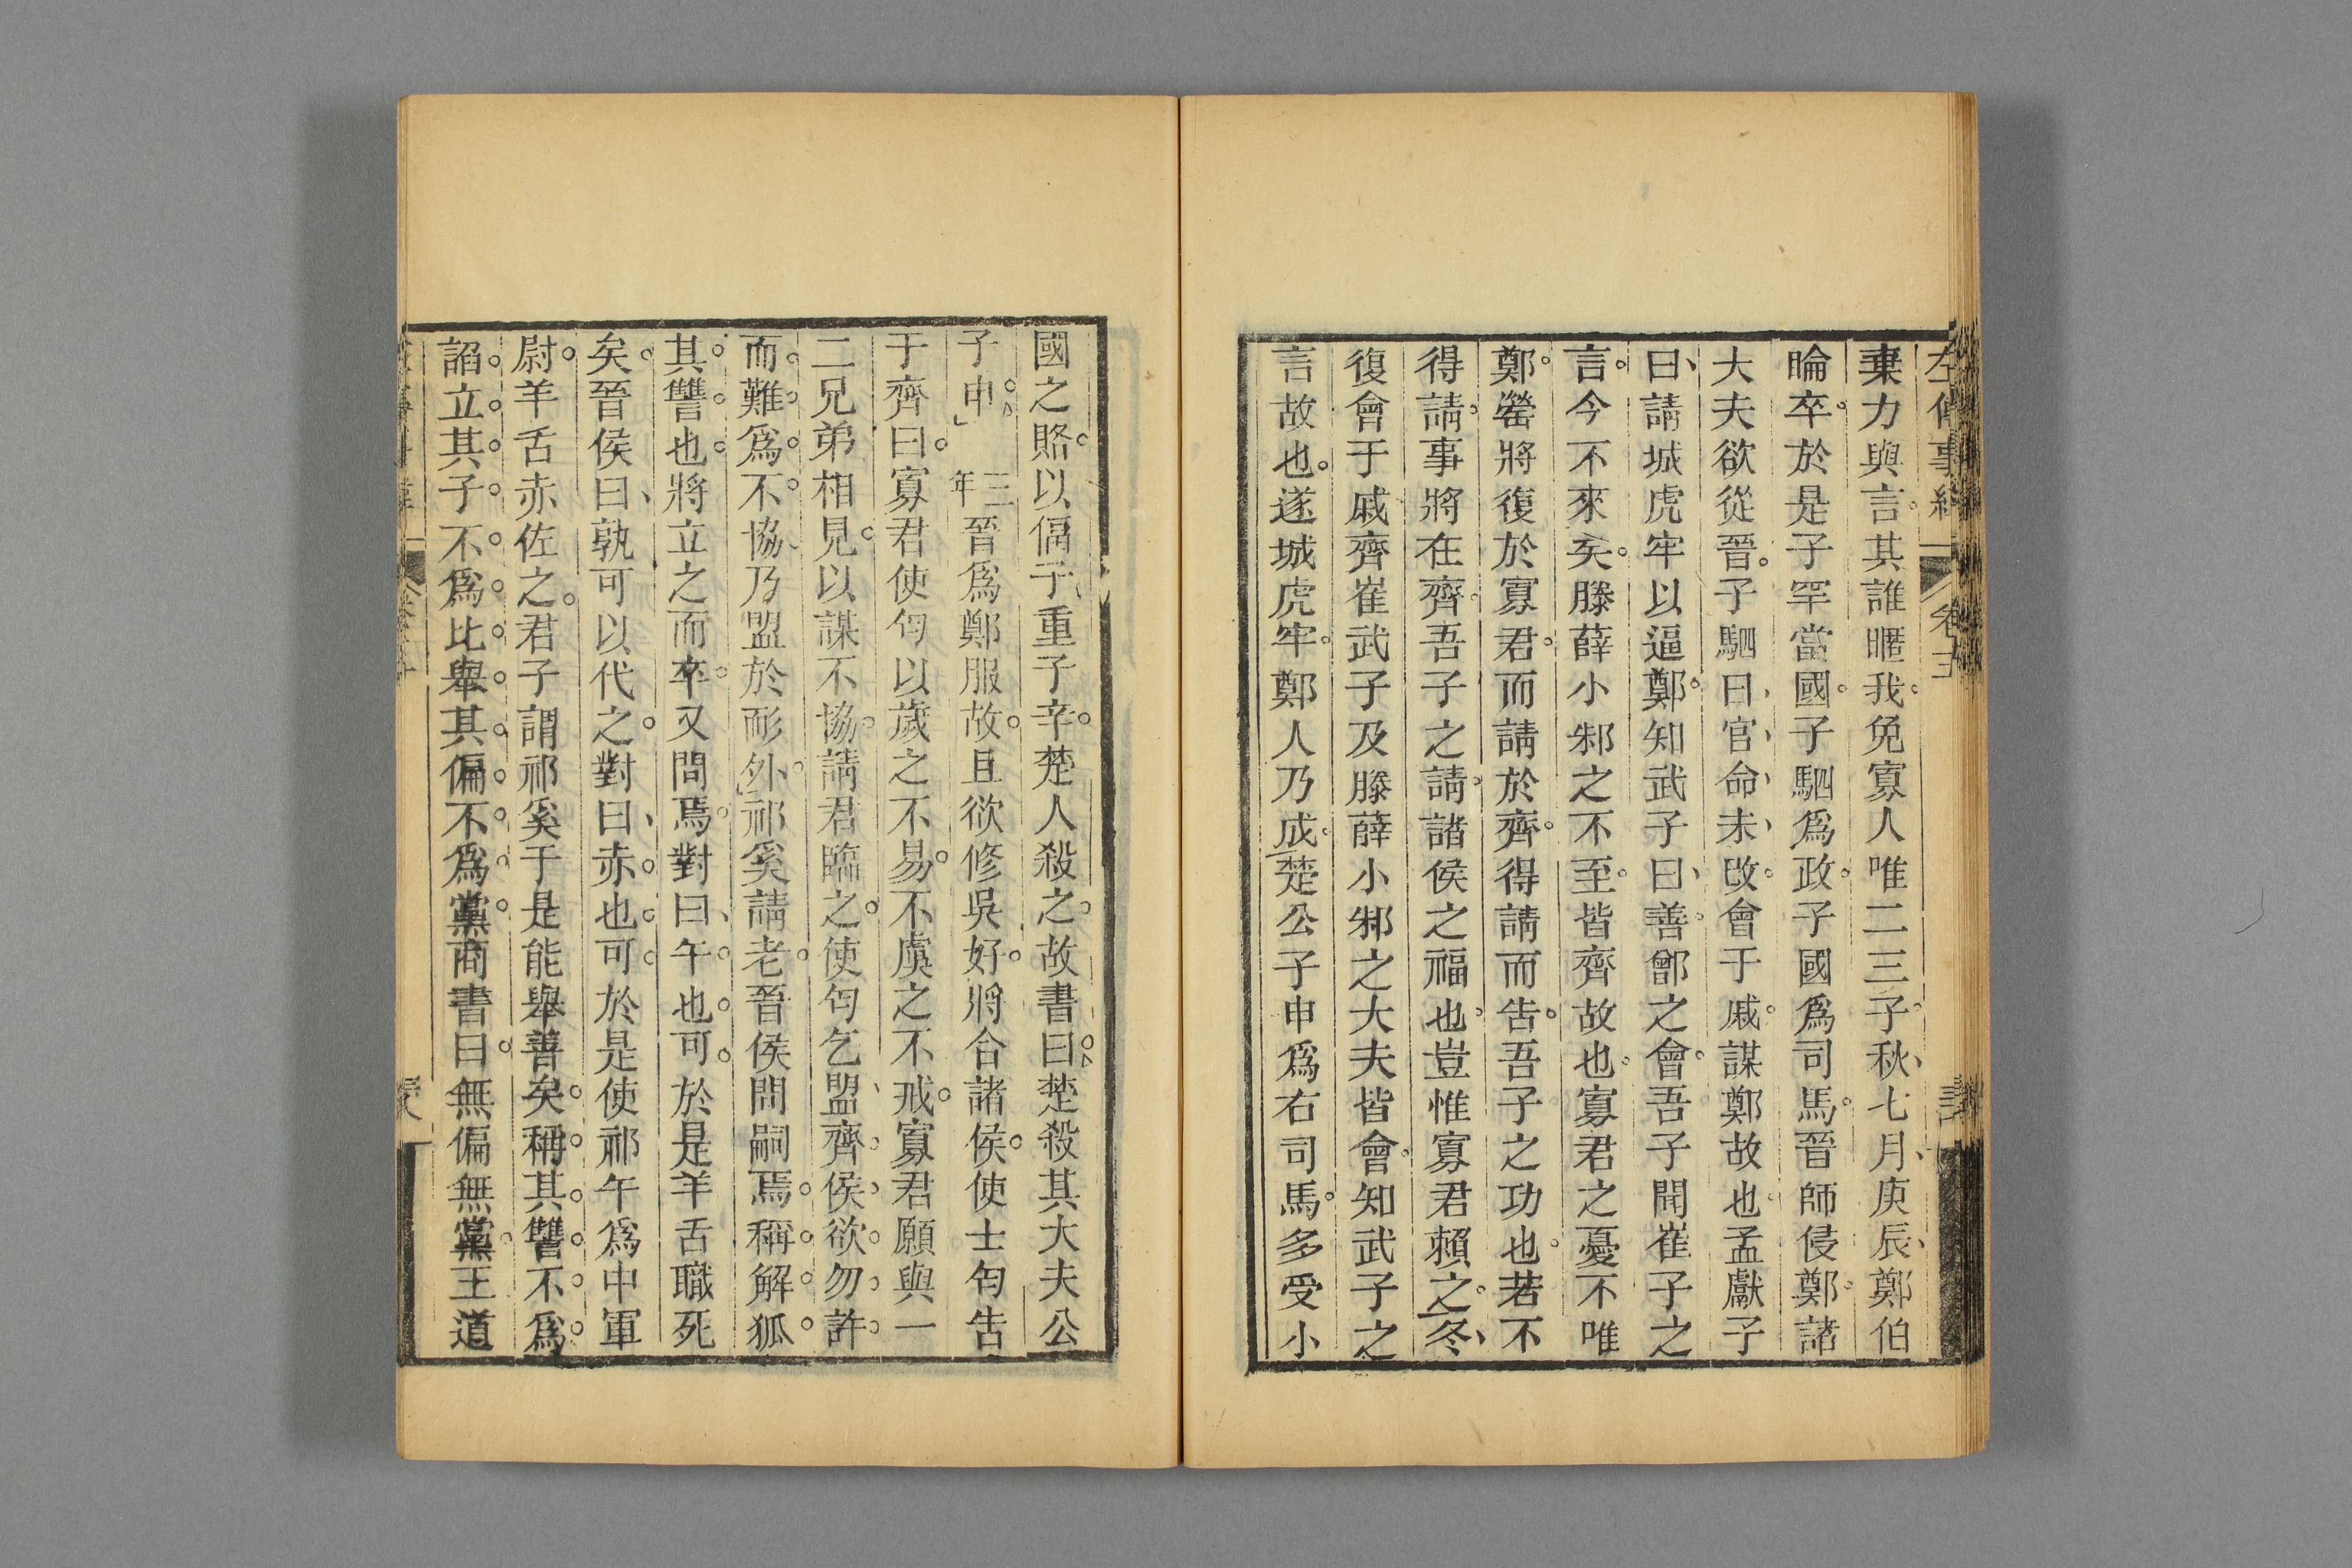 左傳事緯
卷十
棄力與言其誰暱我免寡人唯二三子秋七月庚辰鄭伯
睔卒於是子罕當國子駟爲政子國爲司馬晉師侵鄭諸
大夫欲從晉子駟曰官命未改會于戚謀鄭故也孟獻子
曰請城虎牢以逼鄭知武子曰善鄫之會吾子聞崔子之
言今不來矣滕薛小邾之不至皆齊故也寡君之憂不唯
鄭罃將復於寡君而請於齊得請而告吾子之功也若不
得請事將在齊吾子之請諸侯之福也豈惟寡君賴之冬
復會于戚齊崔武子及滕薛小邾之大夫皆會知武子之
言故也遂城虎牢鄭人乃成楚公子申爲右司馬多受小
國之賂以偪子重子辛楚人殺之故書曰楚殺其大夫公
子申三年晉爲鄭服故且欲修吳好將合諸侯使士匄告
于齊曰寡君使匄以歲之不易不虞之不戒寡君願與一
二兄弟相見以謀不協請君臨之使匄乞盟齊侯欲勿許
而難爲不協乃盟於耏外祁奚請老晉侯問嗣焉稱解狐
其讐也將立之而卒又問焉對曰午也可於是羊舌職死
矣晉侯曰孰可以代之對曰赤也可於是使祁午爲中軍
尉羊舌赤佐之君子謂祁奚于是能舉善矣稱其讐不爲
諂立其子不爲比舉其偏不爲黨商書曰無偏無黨王道